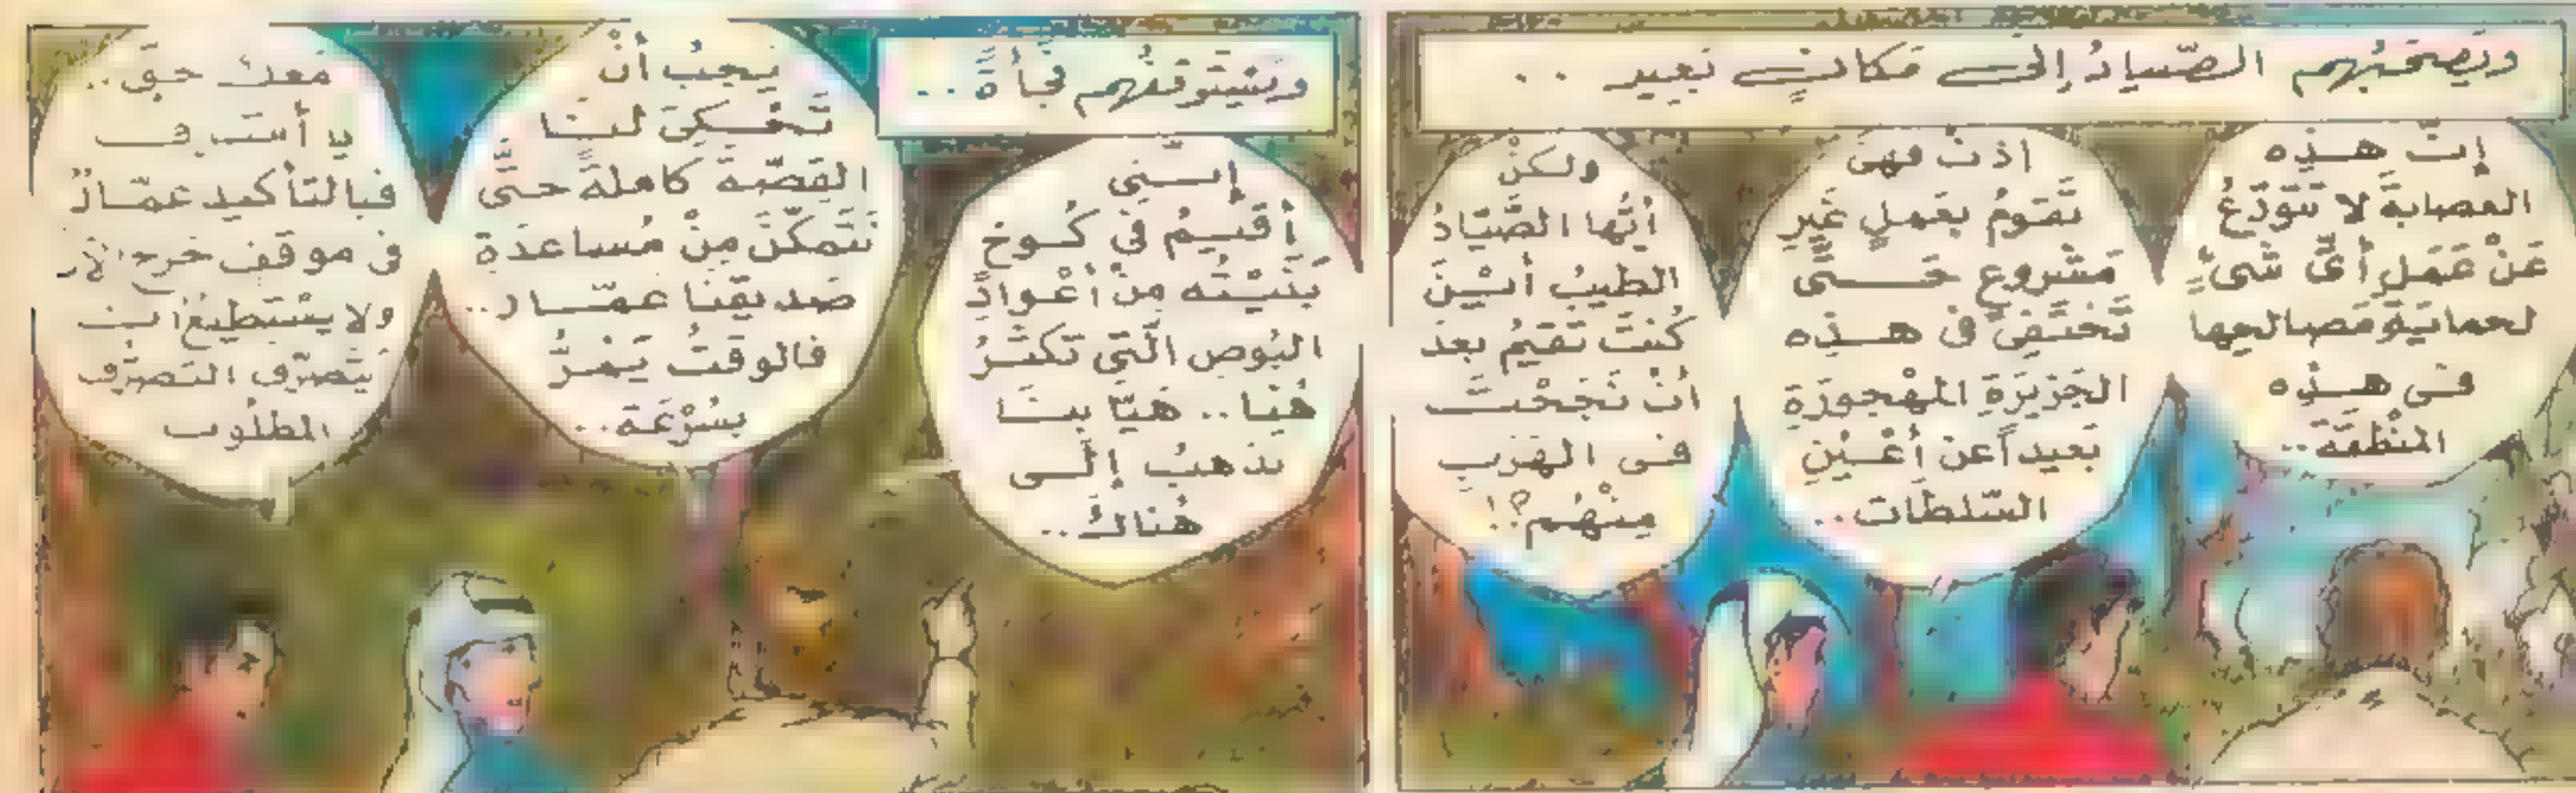 ويصحبهم الصّيادُ إلى مكانٍ بعيد ..
إنّ هذه
العصابةَ لا تتورّعُ
عَنْ عَمَلِ أىّ شىءٍ
لحمايةِ مَصالحِها
فى هذه
المنْطقة..
إذن فهىَ
تَقومُ بعَملٍ غَيرِ
مَشروعٍ حتَّى
تَختفِىَ فى هذه
الجَزيرَةِ المهْجورَةِ
بَعيداً عن أعْيُنِ
السّلطات..
ولكنْ
أيُّها الصَّيّادُ
الطيبُ أيْنَ
كُنتَ تُقيمُ بعدَ
أنْ نَجَحْتَ
فى الهَرَبِ
مِنْهُم؟!
ويَسْتَوقفُهم فجأةً ..
إنّنى
أقيمُ فى كُوخٍ
بَنَيْتُه مِنْ أعْوادِ
البُوصِ الَّتى تَكثُرُ
هُنا.. هَيّا بنَا
نذهبُ إلَى
هُناكَ..
يَجبُ أنْ
تَحْكىَ لنَا
القِصّةَ كاملةً حتَّى
نَتَمكّنَ مِنْ مُساعدَةِ
صَديقِنا عمّار..
فالوقتُ يَمُرُّ
بسُرْعَة..
مَعكَ حقّ..
يا أشرف
فبالتأكيد عمّارٌ
فى موقف حرج الآن
ولا يسْتَطيعُ أن
يَتَصرّف التصرّف
المطلُوب